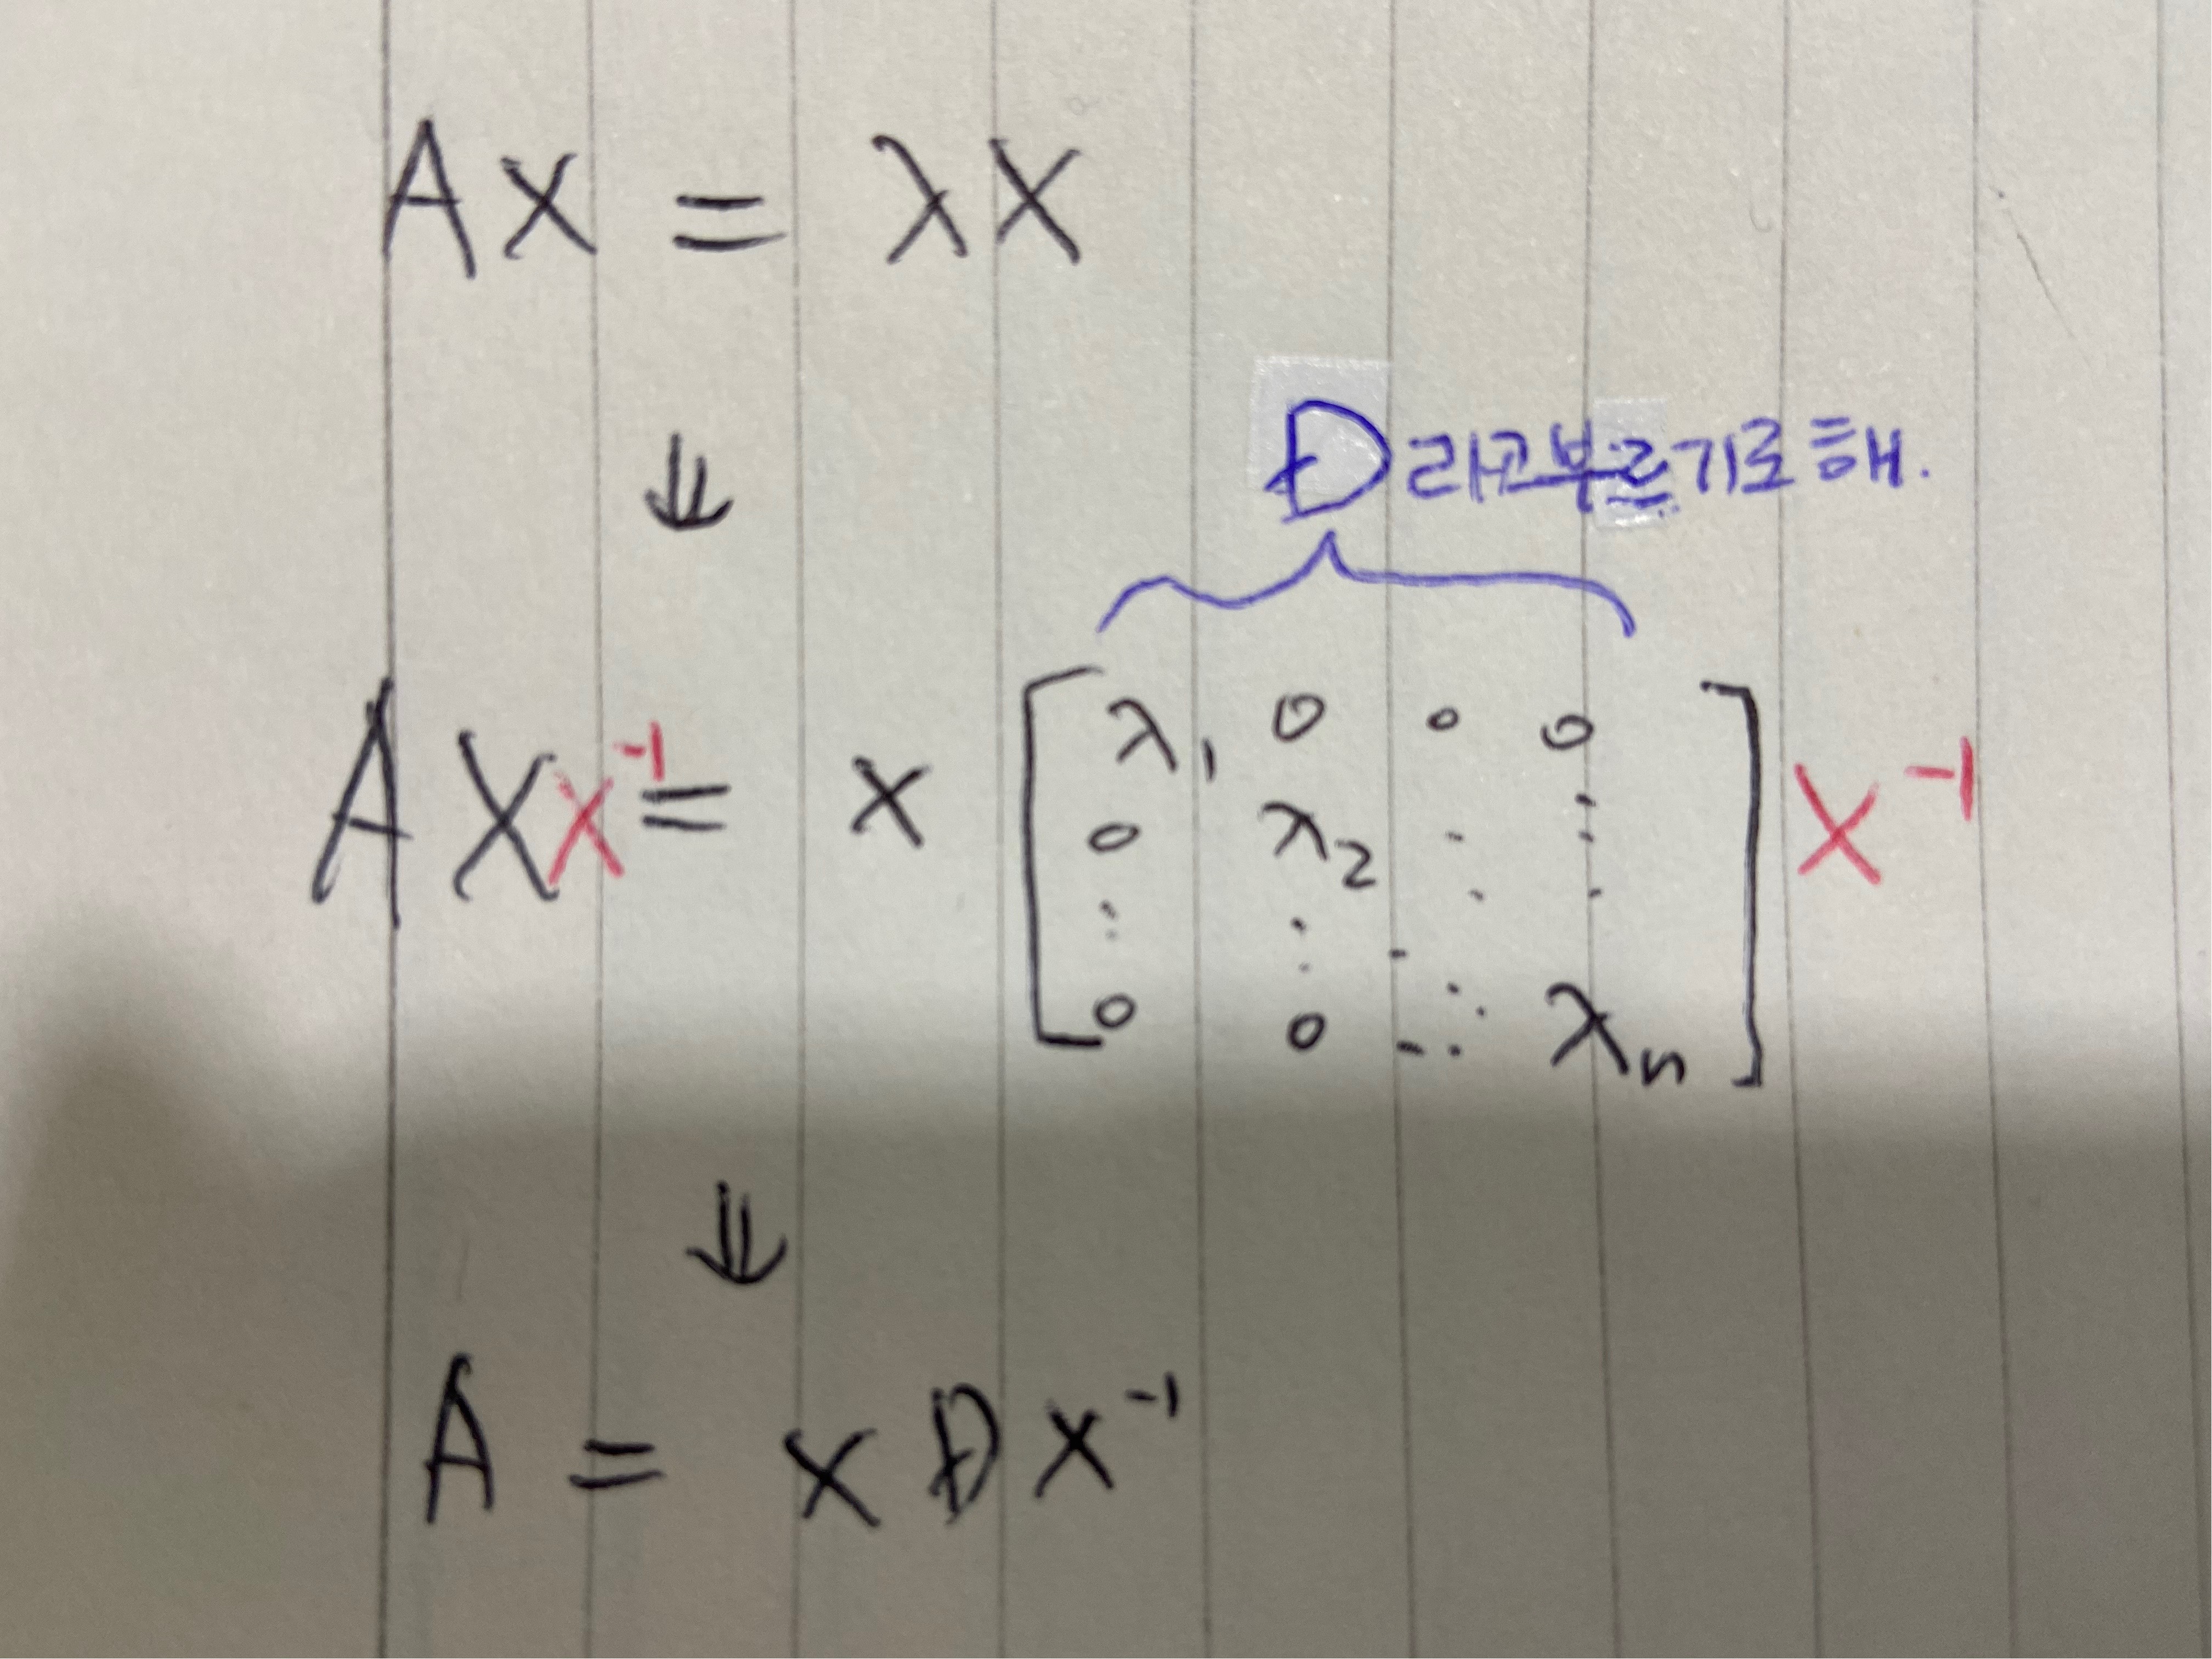 AX = λX
⇓
D라고부르기로해.
AXX⁻¹ = X [ λ₁ 0 0 0
0 λ₂ ⋱ ⋮
⋮ ⋮ ⋱ ⋮
0 0 ... λₙ ] X⁻¹
⇓
A = XDX⁻¹